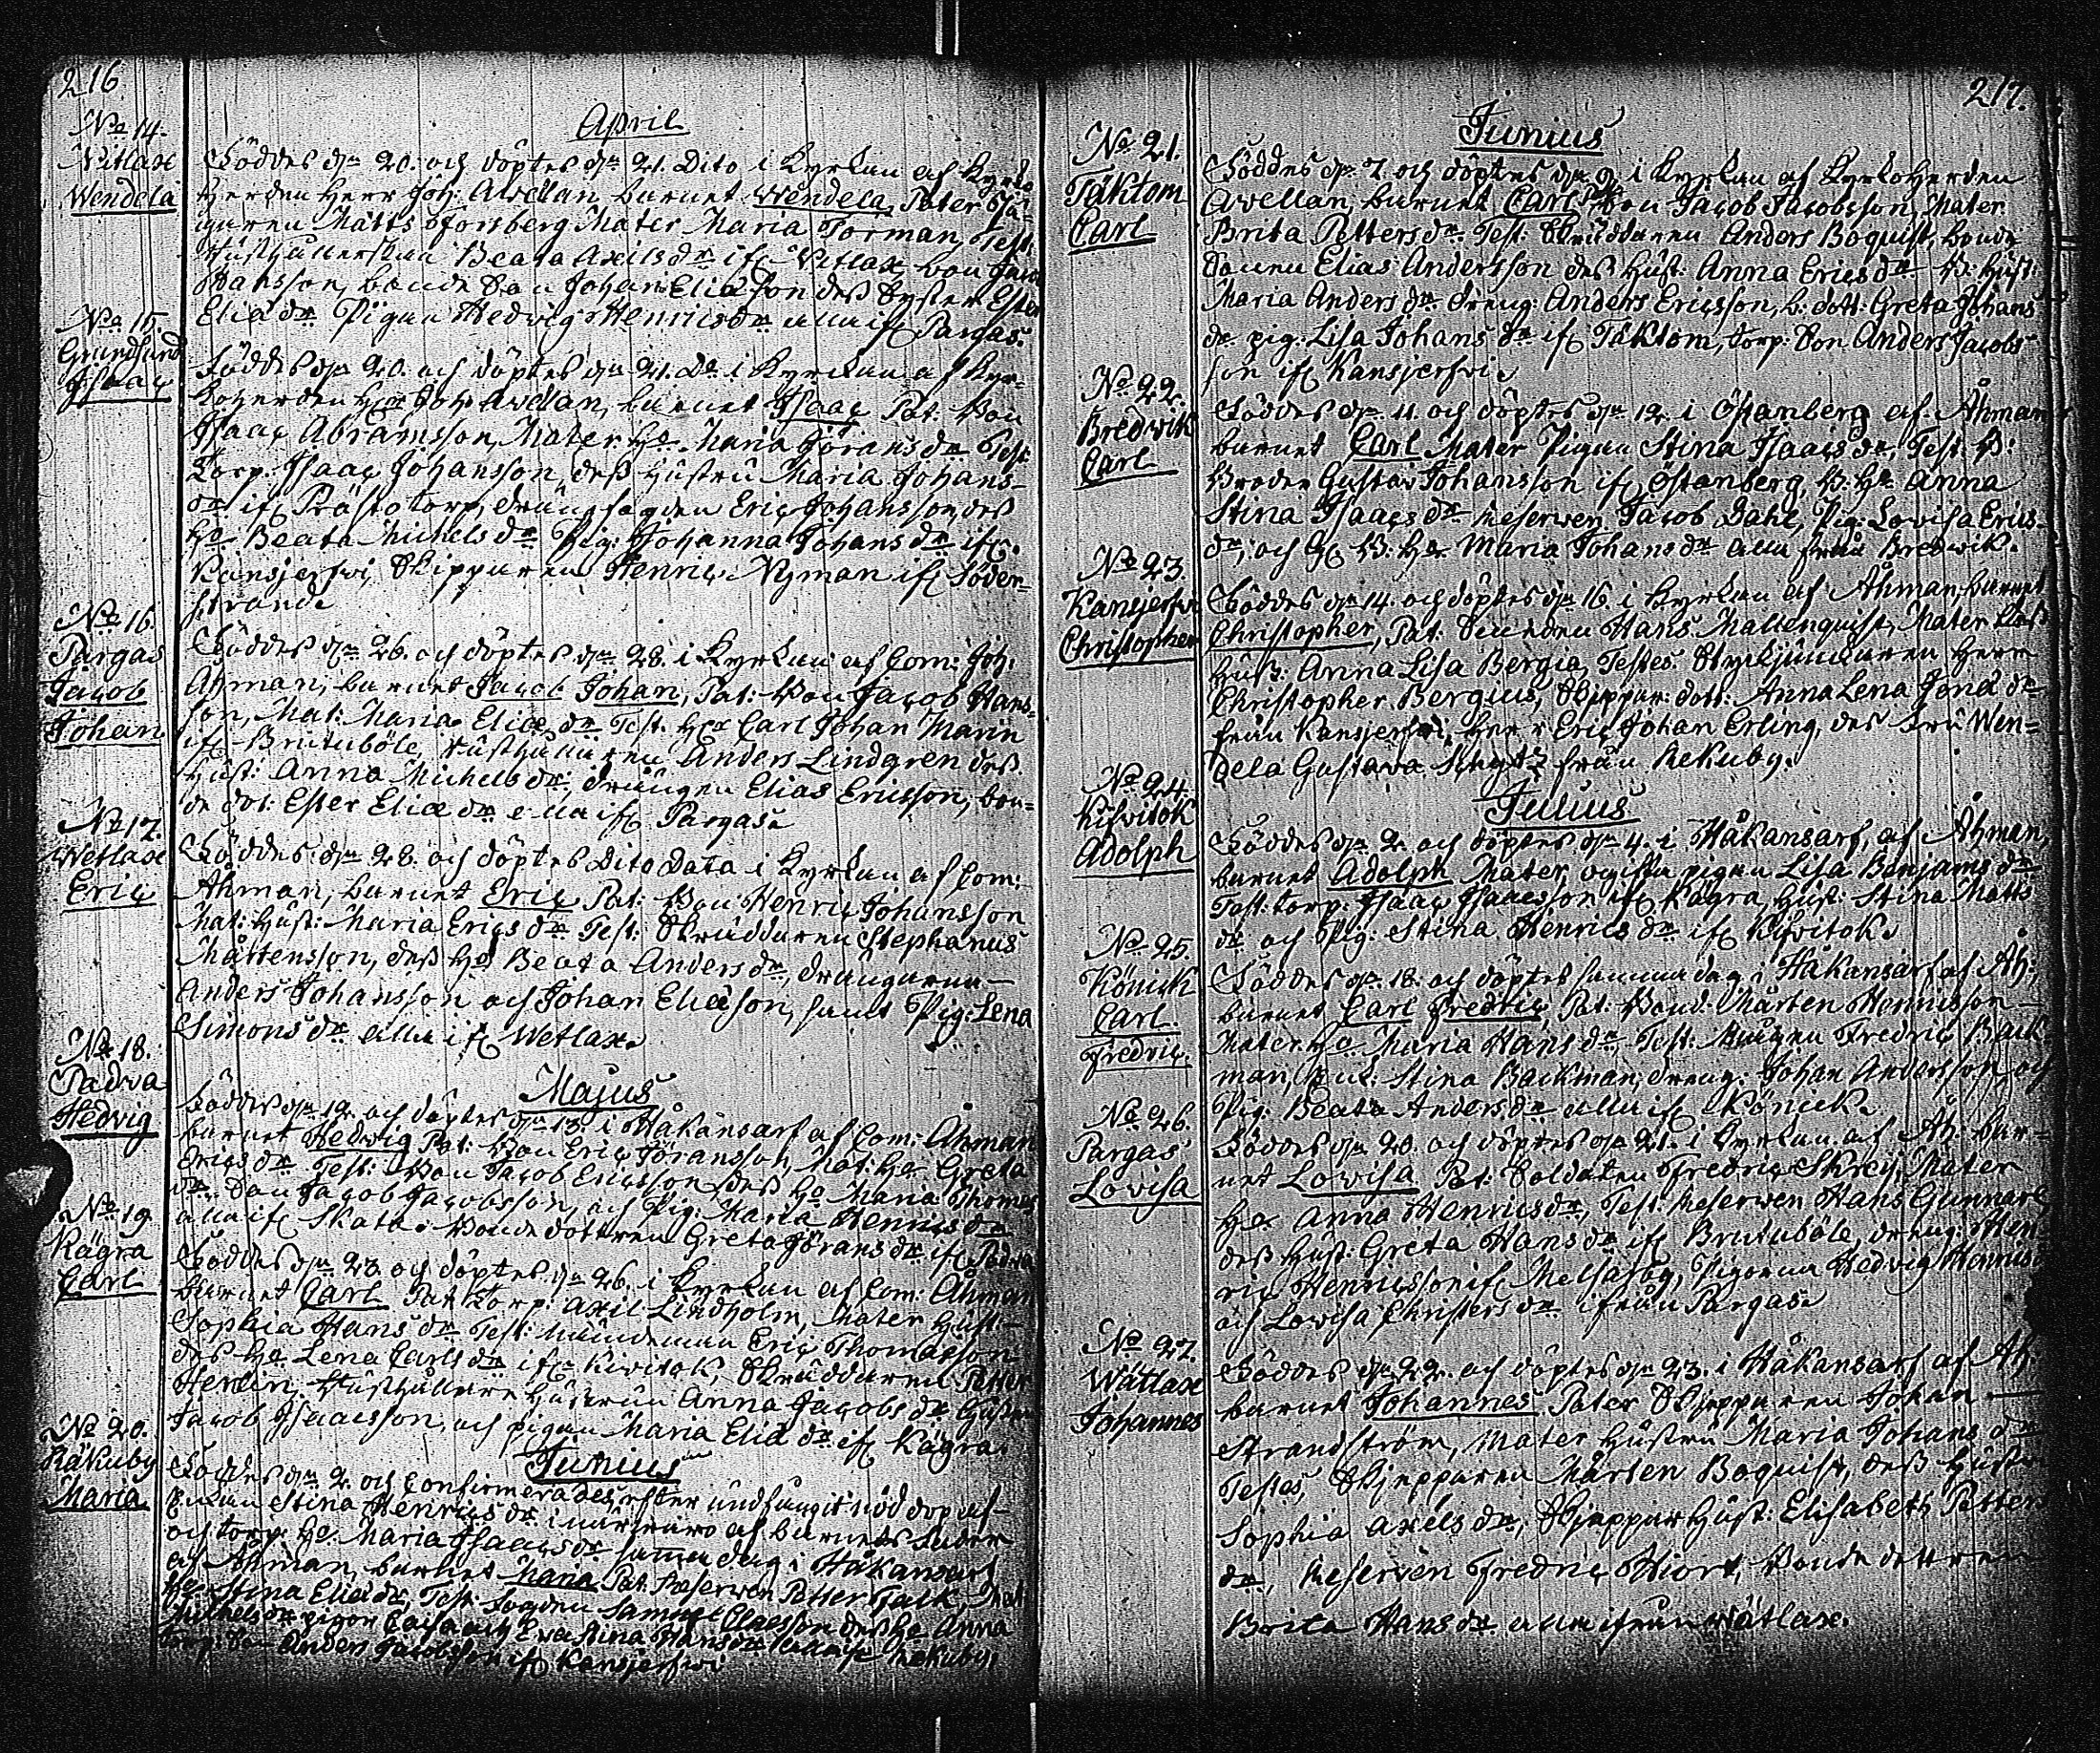 216
April
No 14.
Witlax
Wendela
Föddes d:n 20. och döptes d:n 21. Dito i Kyrkan af Kyrko
Herden Herr Joh: Avellan, barnet Wendela, Pater Jä-
garen Matts Forsberg Mater Maria Forman, Test:
Hushållerskan Beata Axelsd:r if: Vitlax, bon: Jacob
Hansson, bonde Son Johan Eliæson dess Syster Ester
Eliæd:r Pigan Hedvig Henricsd:r alla if: Pargas.
No 15.
Grundsund
Isaac
Föddes d:n 20. och döptes d:n 21. D:o i Kyrkan af Kyr-
koherden H:r Joh: Avellan, barnet Isaac Pat: Bon:
Isaac Abramsson, Mater H:o Maria Göransd:r Test:
Torp. Isaac Johansson, dess Hustru Maria Johans-
d:r if: Prästotorp, Eric Johansson, dess
H:o Beata Michelsd:r Pig: Johanna Johansd:r if:
Kansjerfvi, Skipparen Henric Nyman if: Söder-
strand.
No 16.
Pargas
Jacob
Johan
Föddes d:n 26. och döptes d:n 28. i Kyrkan af Com: Joh:
Åhman, barnet Jacob Johan, Pat: Bon: Jacob Hans-
son, Mat: Maria Eliæd:r Test: H:r Carl Johan Marin
if: Brutuböle, Rusthållaren Anders Lindgren dess
Hust: Anna Michelsd:r, Drängen Elias Ericsson, bon-
de dot: Ester Eliæd:r alla if: Pargas.
No 17.
Wetlax
Eric
Föddes d:n 28. och döptes Dito Data i Kyrkan af Com:
Åhman, barnet Eric Pat: Bon: Henric Johansson
Mat: Hust: Maria Ericsd:r Test: Skräddaren Stephanus
Mårtensson, dess H:o Beata Andersd:r, drängarna
Anders Johansson och Johan Eliæson, samt Pig: Lena
Simonsd:r alla if: Wetlax.
Majus
No 18.
Padva
Hedvig
Föddes d:n 12. och döptes d:n 13. i Håkansarf af Com: Åhman
barnet Hedwig Pat: Bon: Eric Göransson, Mat: H:o Greta
Ericsd:r Test: Bon: Jacob Ericsson dess H:o Maria Thomas
d:r Son Jacob Jacobsson, och Pig: Maria Henricsd:r
alla if: Skata. Bonde dottren Greta Göransd:r if: Padva
No 19
Kägra
Carl
Föddes d:n 23. och döptes d:n 26. i Kyrkan af Com: Åhman
barnet Carl Pat: Torp: Axil Lindholm, Mater Hust:
Sophia Hansd:r Test: Eric Thomasson
dess H:o Lena Carlsd:r if: Kivitok, Skräddaren Petter
Herlin, Hushållare Hustrun Anna Jacobsd:r
Jacob Isaacsson, och pigan Maria Eliæd:r if: Kägra.
Junius
No 20.
Räkuby
Maria
Föddes d:n 2. och Confirmerades efter undfångit nöd dop af
Stina Henricsd:r i närvaro af barnets fader
och torp: H:o Maria Isaacsd:r samma dag i Håkansarf
af Åhman, barnet Maria Pat: Reserven Petter Falk, Mat:
H:o Stina Eliæd:r, Test: Samuel Claesson dess H:o Anna
Michelsd:r pigor Eva Stina Hansd:r Rekuby,
torp: Son Anders Jacobsson if: Kansjerfvi
217.
Junius
No 21.
Täktom
Carl
Föddes d:n 7. och döptes d:n 9. i Kyrkan af KyrkoHerden
Avellan, barnet Carl Pat: Bon: Jacob Jacobsson, Mater
Brita Pettersd:r Test: Skräddaren Anders Boquist, bonde
Sonen Elias Andersson dess Hust: Anna Ericsd:r B: Hust:
Maria Andersd:r dreng: Anders Ericsson, b: dott: Greta Johans
d:r pig: Lisa Johansd:r if: Täktom, torp: Son Anders Jacobs-
son if: Kansjerfvi.
No 22.
Bredwik
Carl
Föddes d:n 11. och döptes d:n 12. i Östanberg af Åhman
barnet Carl Mater Pigan Stina Isaacsd:r, Test: B:
Broder Gustav Johansson if: Östanberg, B: H:o Anna
Stina Isaacsd:r Reserven Jacob Dahl, Pig: Lovisa Erics-
d:r, och B: H:o Maria Johansd:r alla från Bredwik.
No 23.
Kansjerfvi
Christopher
Föddes d:n 14. och döptes d:n 16. i Kyrkan af Åhman barnet
Christopher, Pat: Hans Malmquist, Mater dess
Hust: Anna Lisa Bergia, Testes Styckjunkaren Herr
Christopher Bergius, Skeppar: dott: Anna Lena Jonæd:r
från Kansjerfvi, Herr Eric Johan Erling, des fru Wen-
dela Gustava Schytz från Rekuby.
Julius
No 24.
Kifvitok
Adolph
Föddes d:n 2. och döptes d:n 4. i Håkansarf, af Åhman,
barnet Adolph Mater, ogifta pigan Lisa Benjamsd:r
Test: torp: Isaac Isaacsson if: Kägra, Hust: Stina Matts
d:r och Pig: Stina Henricsd:r if: Kifvitok.
No 25.
Könick
Carl
Fredric
Föddes d:n 18. och döptes samma dag i Håkansarf af Åh:
barnet Carl Fredric, Pat: Bond: Mårten Henricsson
Mater H:o Maria Hansd:r, Test: Fredric Back
man, Stina Backman, dreng: Johan Andersson, och
Pig: Beata Andersd:r alla if: Könick.
No 26.
Pargas
Lovisa
Föddes d:n 20. och döptes d:n 21. i Kyrkan af Åh: bar-
net Lowisa Pat: Soldaten Fredric Skrej, Mater
H:o Anna Henricsd:r, Test: Reserven Hans Gunnars
dess Hust: Greta Hansd:r if: Brutuböle, dreng: Hen
ric Henricsson if: Melsasby, Pigorna Hedvig Henrics
och Lowisa Christersd:r ifrån Pargas.
No 27.
Wätlax
Johannes
Föddes d:n 22. och döptes d:n 23. i Håkansarf af Åh:
barnet Johannes Pater Skjepparen Johan
Strandström, Mater Hustru Maria Johansd:r
Testes, Skjepparen Mårten Boquist, dess Hustru
Sophia Axelsd:r, Skjeppar Hust: Elisabeth Petters
d:r, Reserven Fredric Hiort, Bonde dottren
Brita Hansd:r alla ifrån Wätlax.